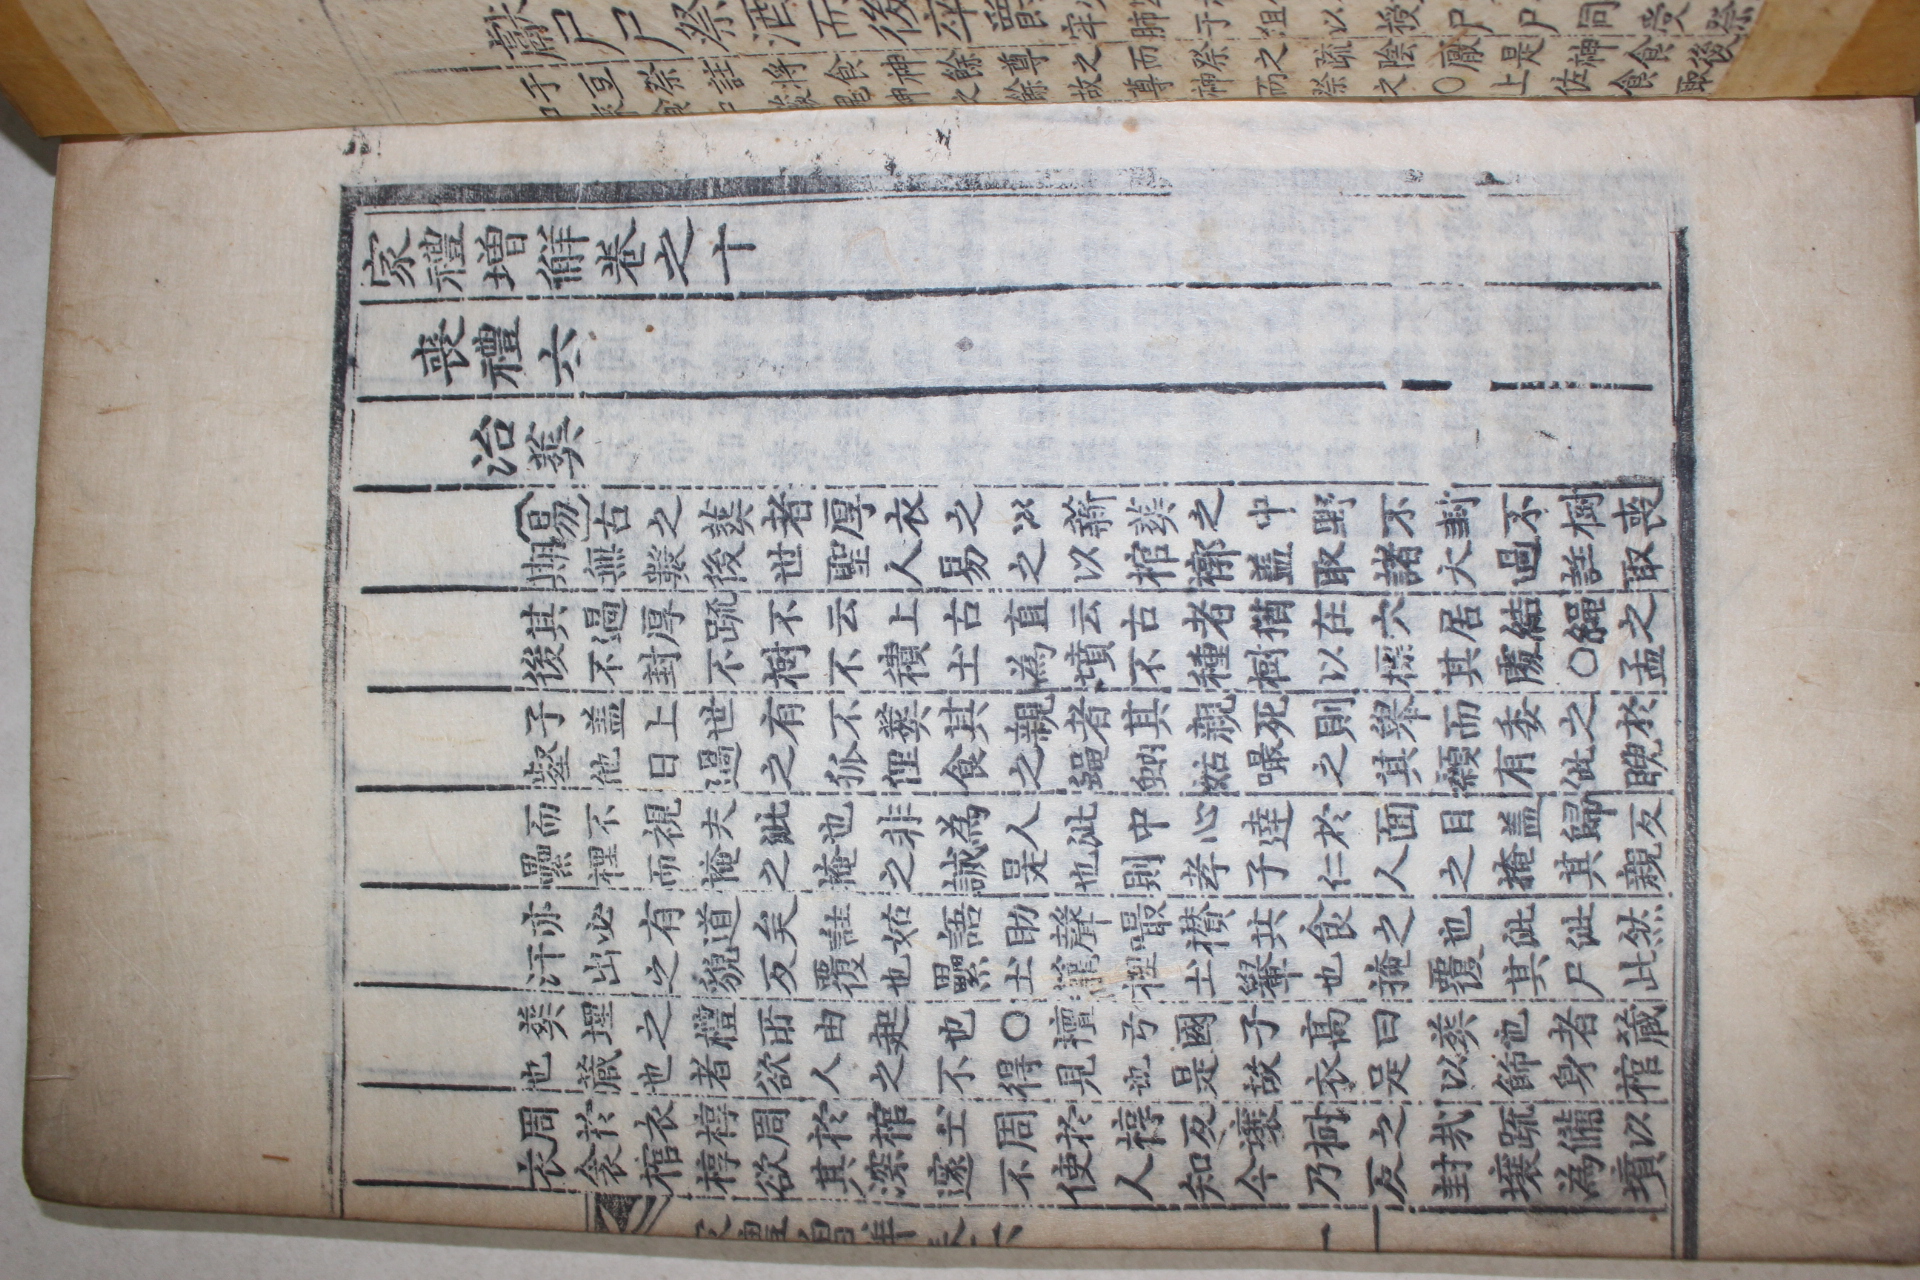 家禮增解卷之十
喪禮六
治葬
易古之葬者厚衣之以薪葬之中野不封不樹喪
期無數後世聖人易之以棺槨盖取諸大過註取
其過厚疏不云上古直云古者猶在穴居結繩之
後不封不樹不積土為墳不種樹以標其處○孟
子盖上世有不葬其親者其親死則擧而委之於
壑他日過之狐狸食之蠅蚋姑嘬之其顙有泚睨
而不視夫泚也非為人泚中心達於面目盖歸反
虆梩而掩之掩之誠是也則孝子仁人之掩其親
亦必有道矣註姑語助聲嘬攢共食之也泚泚然
汗出之貌反覆也虆土籠梩土轝也掩覆其尸此
葬埋之禮所由起也○檀弓國子高曰葬也者藏
也藏也者欲人之不得見也是故衣足以飾身棺
周於衣椁周於棺土周於椁反壤樹之哉疏備以
衣衾棺椁欲其深邃不使人知今乃反封壤為墳
獻尸尸祭酒而後卒爵
牢肺于俎以授尸尸同受祭
于豆祭註將食神餘尊之而祭之疏陰厭是神食後
神之餘故尊神而祭之○上佐食取